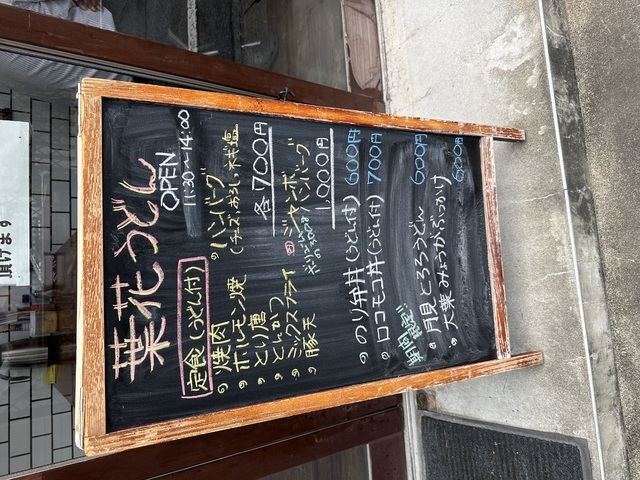 葉花うどん
OPEN
11:30～14:00
定食(うどん付)
焼肉
ホルモン焼
とり唐
とんかつ
ミックスフライ
豚天
ハンバーグ
(チーズ、おろし、ネギ塩)
各700円
ジャンボ
ハンバーグ
1,000円
のり弁丼(うどん付) 600円
ロコモコ丼(うどん付) 700円
期間限定!!
月見とろろうどん 600円
大葉みょうがぶっかけ 600円
頂けます